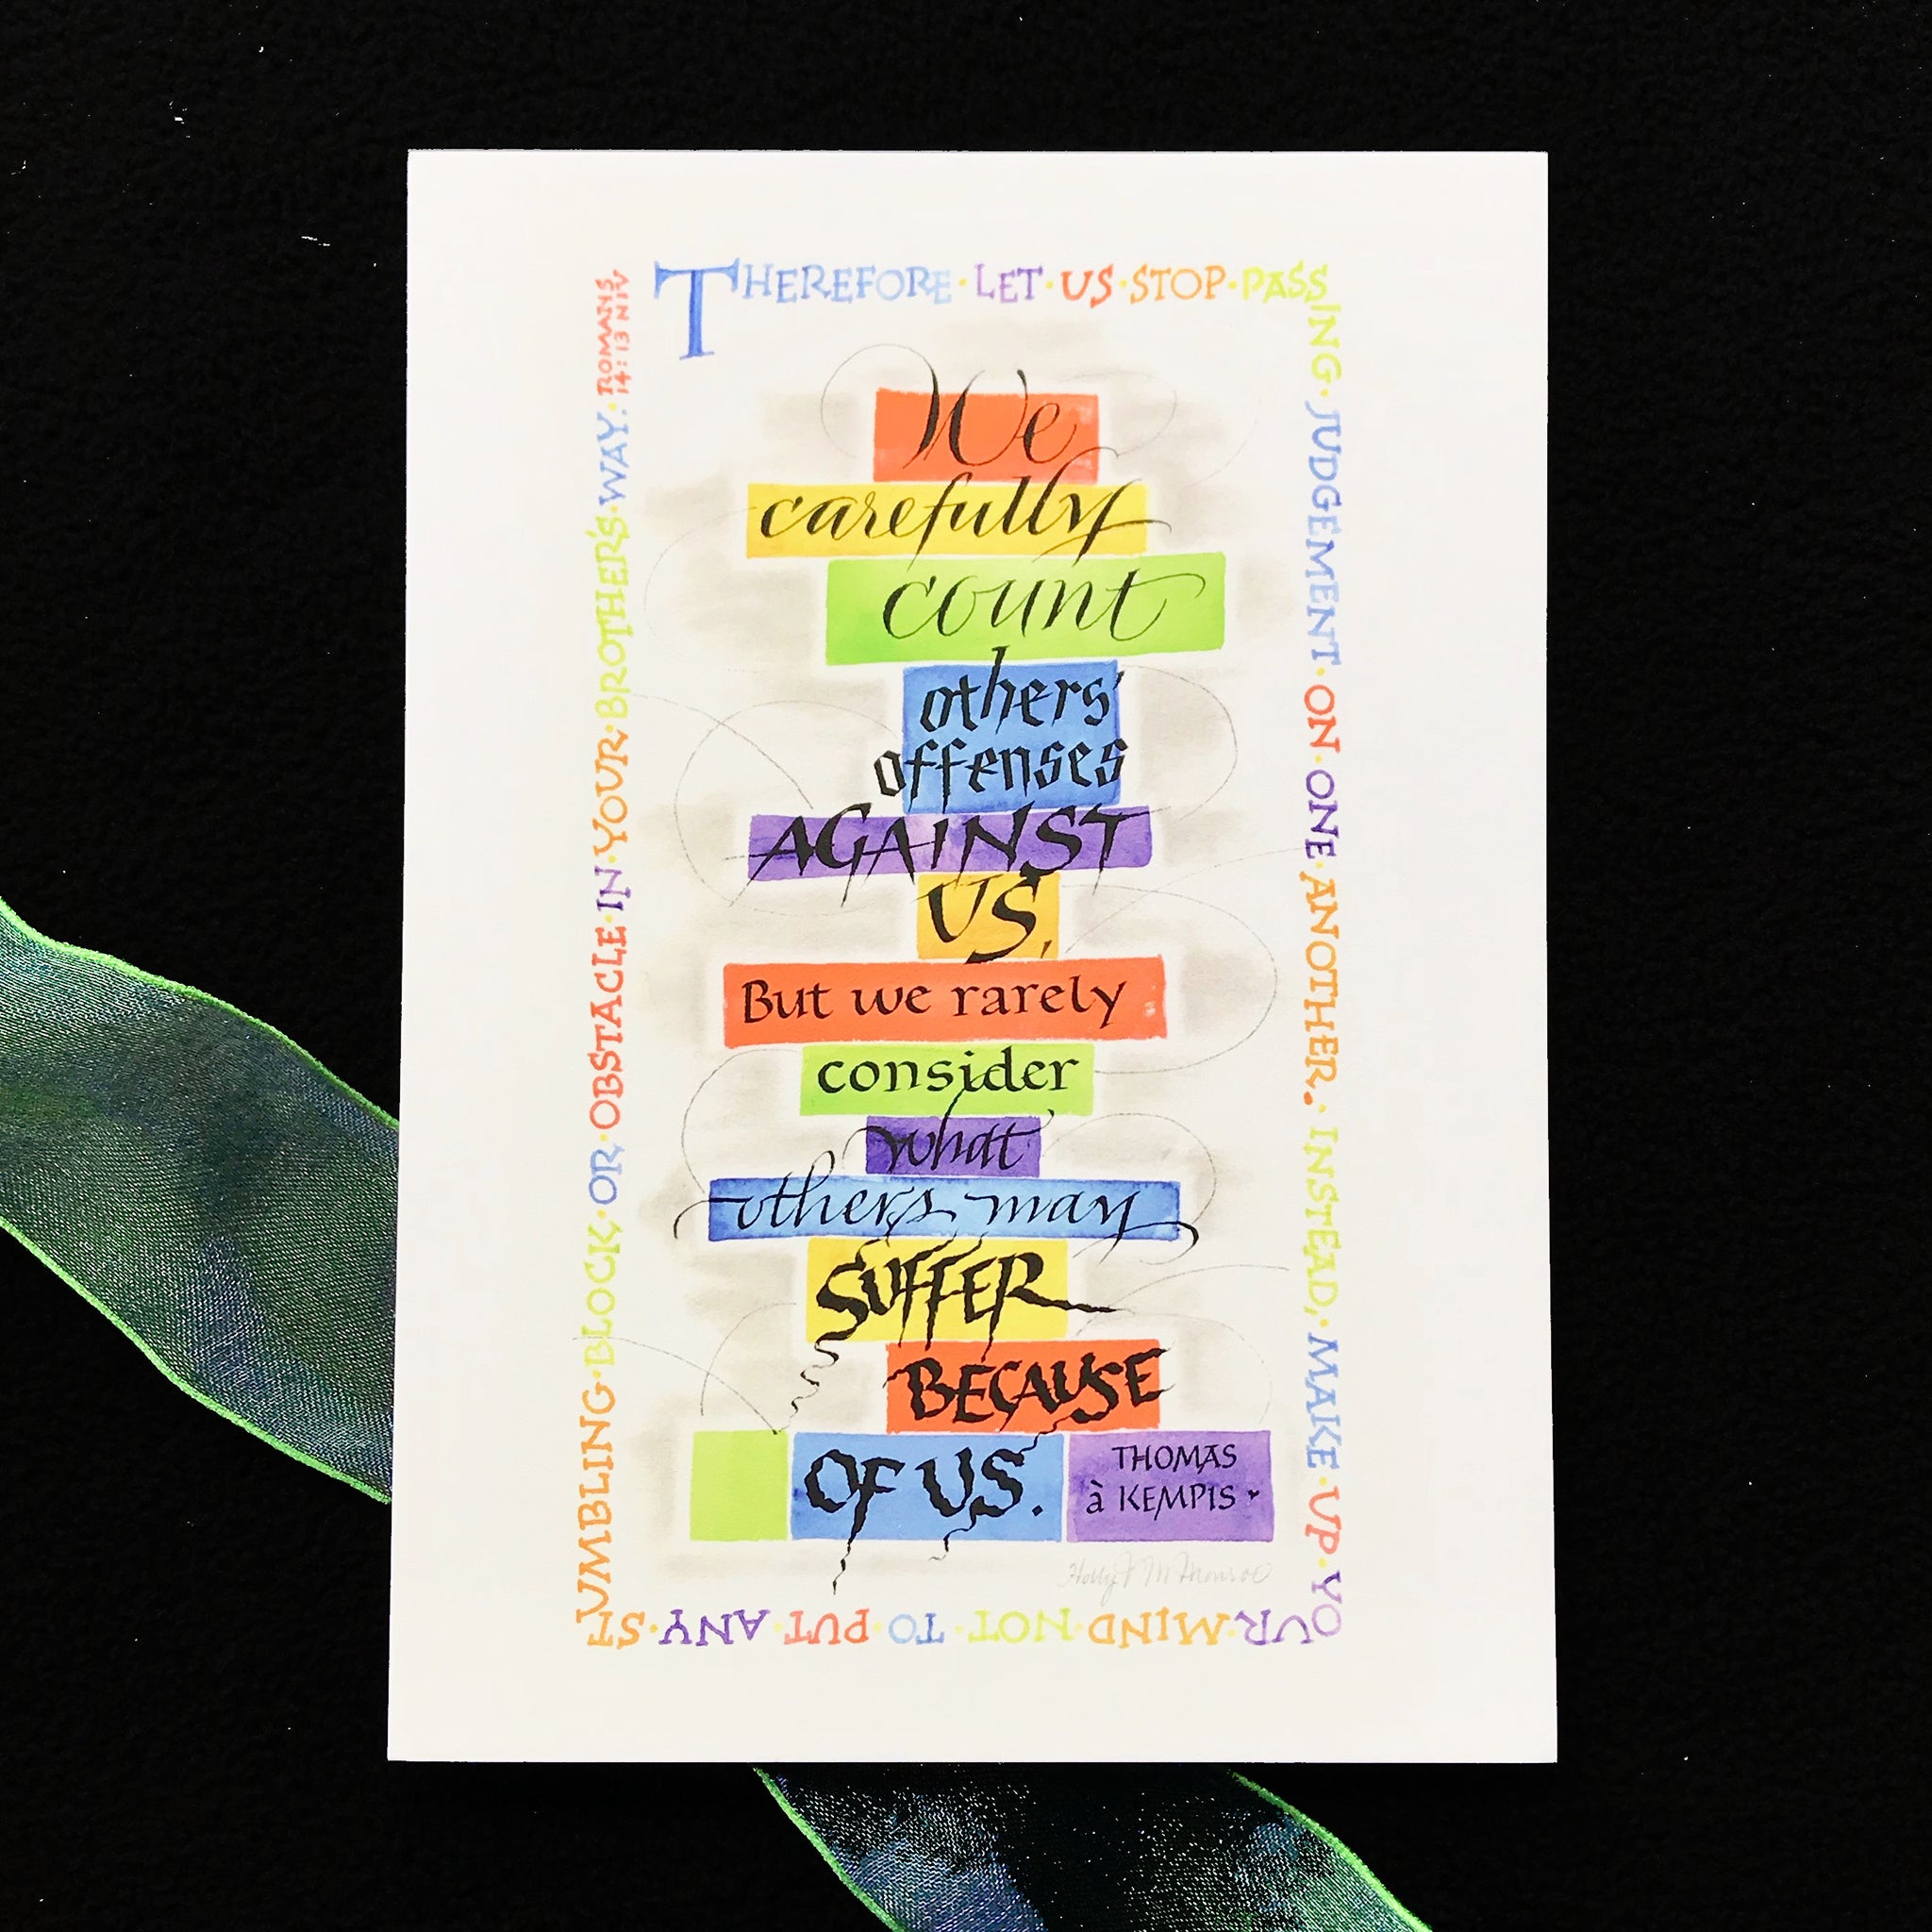 THEREFORE·LET·US·STOP·PASS
ING·JUDGEMENT·ON·ONE·ANOTHER.·INSTEAD,·MAKE·UP·YO
UR·MIND·NOT·TO·PUT·ANY·ST
UMBLING·BLOCK·OR·OBSTACLE·IN·YOUR·BROTHER'S·WAY.·
ROMANS
14:13 NIV
We
carefully
count
others'
offenses
AGAINST
US,
But we rarely
consider
what
others may
SUFFER
BECAUSE
OF US.
THOMAS
à KEMPIS